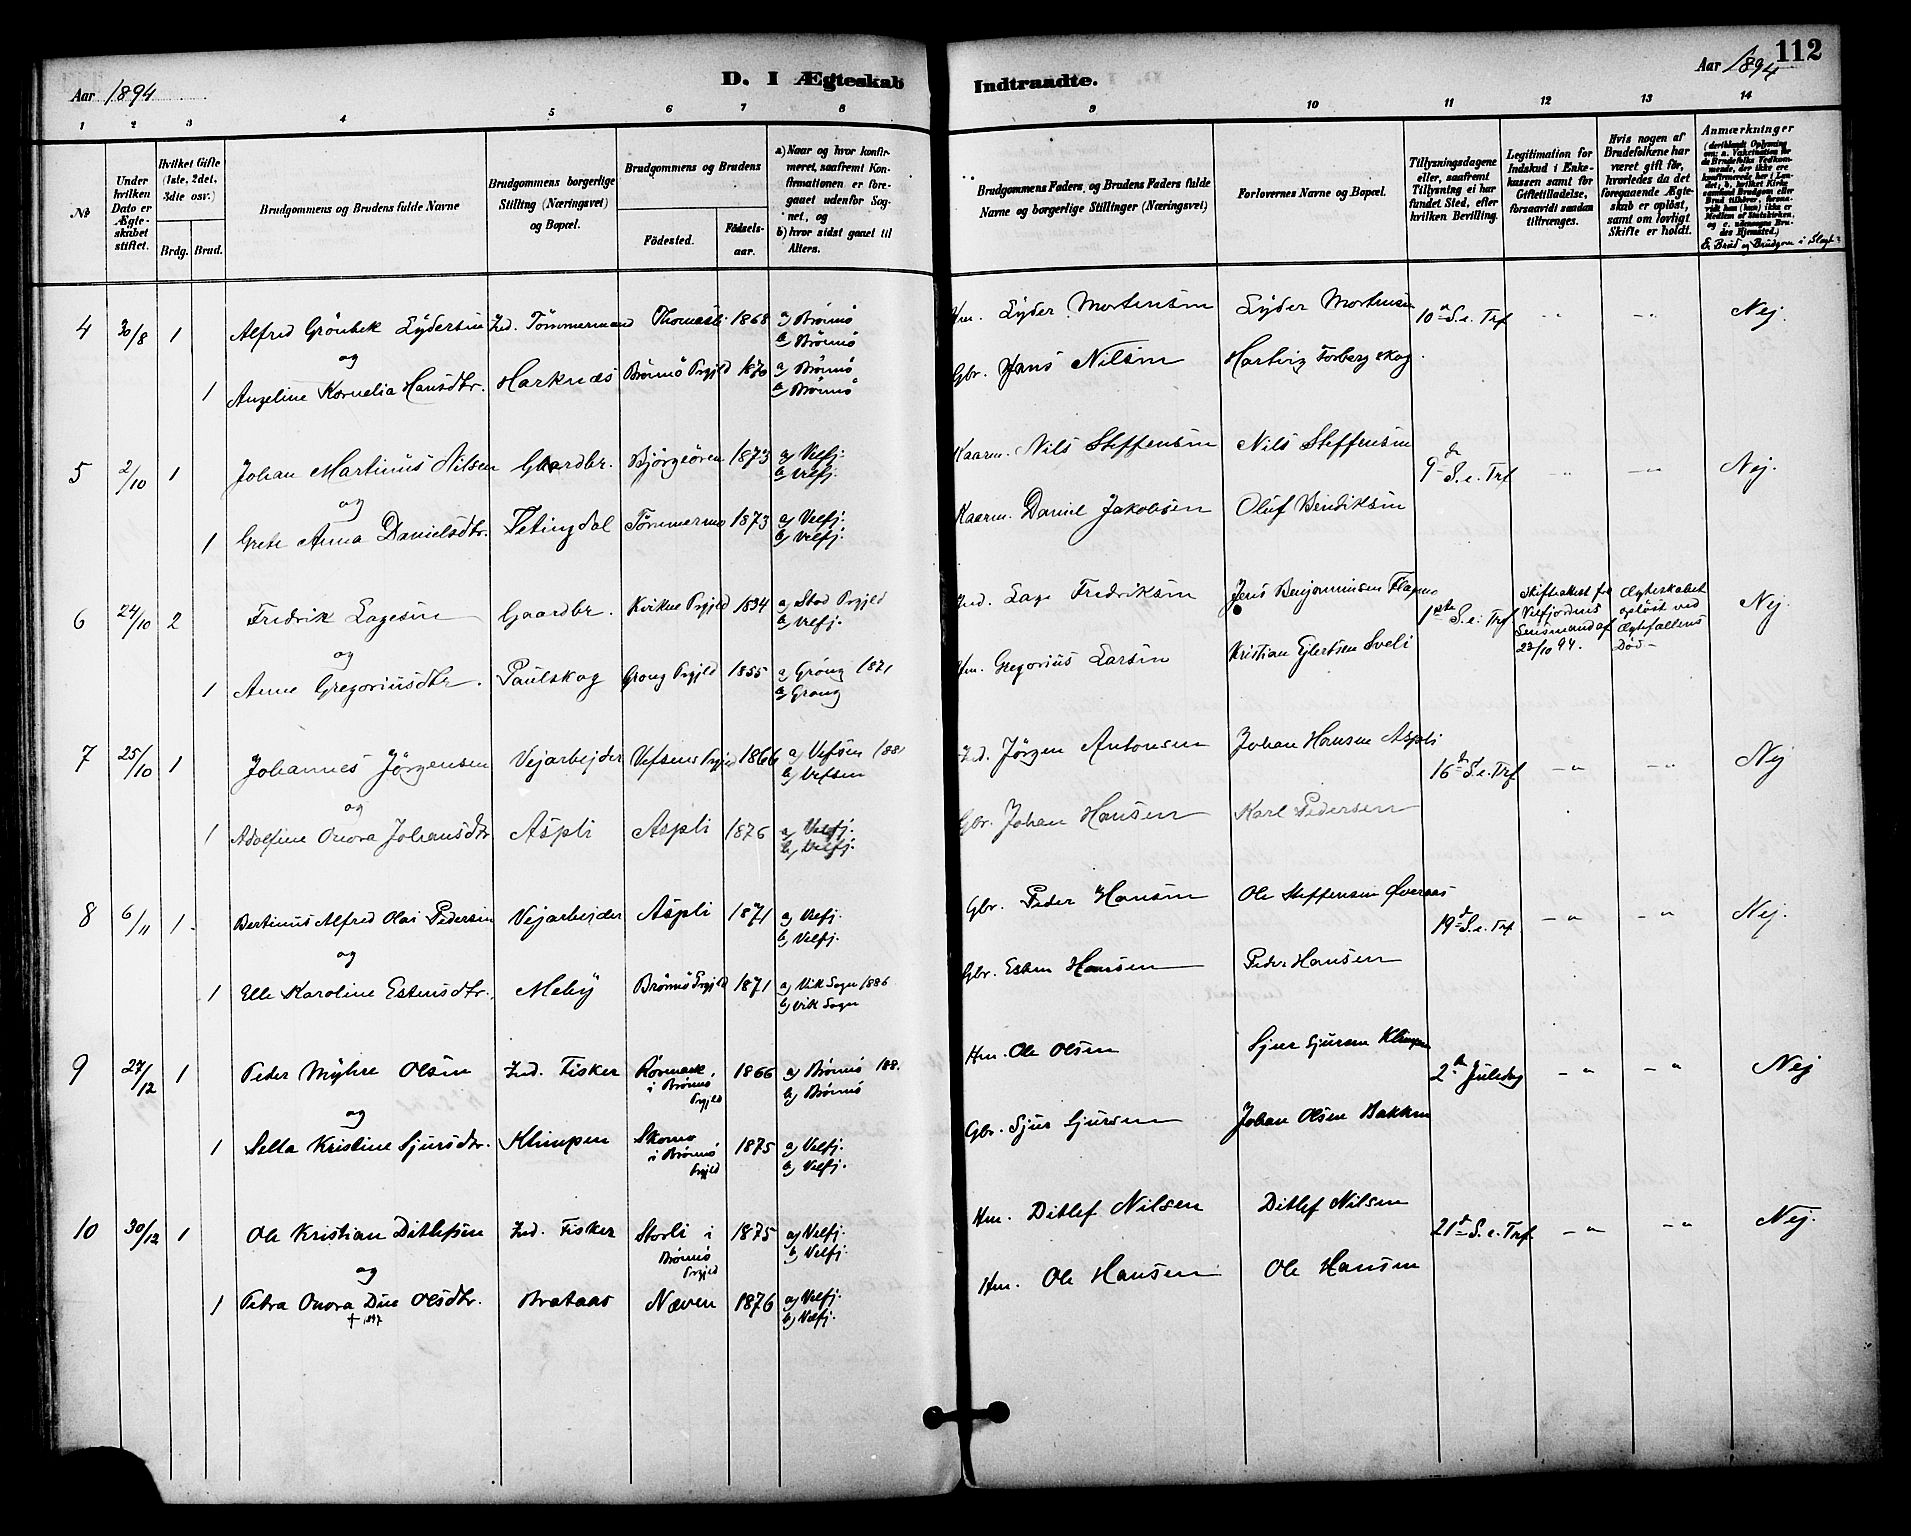 Aar 1894
D. I Ægteskab
Indtraadte.
Aar 1894
112
1 2 3 4 5 6 7 8 9 10 11 12 13 14
Nº
Under hvilken Dato er Ægteskabet stiftet.
Hvilket Gifte (1ste, 2det, 3die osv.)
Brdg. Brud.
Brudgommens og Brudens fulde Navne
Brudgommens borgerlige Stilling (Næringsvei) og Bopæl.
Brudgommens og Brudens
Födested.
Födselsaar.
a) Naar og hvor konfirmeret, saafremt Konfirmationen er foregaaet udenfor Sognet, og
b) hvor sidst gaaet til Alters.
Brudgommens Faders, og Brudens Faders fulde Navne og borgerlige Stillinger (Næringsvei)
Forlovernes Navne og Bopæl.
Tillysningsdagene eller, saafremt Tillysning ei har fundet Sted, efter hvilken Bevilling.
Legitimation for Indskud i Enkekassen samt for Giftetilladelse, forsaavidt saadan tiltrænges.
Hvis nogen af Brudefolkene har været gift för, hvorledes da det foregaaende Ægteskab er oplöst, samt om lovligt Skifte er holdt.
Anmærkninger
& Brud og Brudgom i Slægt?
4 30/8 1 Alfred Grönbek Lydersen Ind. Tömmermand Thomasli 1868 a) Brönnö
b) Brönnö
Hm. Lyder Mortensen Lyder Mortensen 10de S. e. Trf. -"- -"- Nej.
og
1 Angeline Kornelia Hansdtr. Harknæs Brönnö Prgjld 1870 a) Brönnö
b) Brönnö
Gbr. Hans Nilsen Hartvig Forbergskog
5 2/10 1 Johan Martinus Nilsen Gaardbr. Björgeören 1873 a) Velfj.
b) Velfj.
Kaarm. Nils Steffensen Nils Steffensen 9de S. e. Trf -"- -"- Nej.
og
1 Grete Anna Danielsdtr. Tetingdal Tömmermo 1873 a) Velfj.
b) Velfj.
Kaarm. Daniel Jakobsen Oluf Bendiksen
6 24/10 2 Fredrik Lagesen Gaardbr. Kvikne Prgjld 1834 a) Stod Prgjeld
b) Velfj.
Ind. Lage Fredriksen Jens Benjaminsen 1ste S. e. Trf Skifteattest fra Velfjordens Lensmand af 23/10 94. Ægteskabet opløst ved Ægtefællens Død - Nej.
og
1 Anne Gregoriusdtr. Paulskog Grong Prgjld 1855 a) Grong 1871
b) Grong
Hm. Gregorius Larsen Kristian Ejlertsen Sveli
7 25/10 1 Johannes Jörgensen Vejarbejder Vefsens Prgjld 1866 a) Vefsen 188
b) Vefsen
Ind. Jörgen Antonsen Johan Hansen Aspli 16de S. e. Trf. -"- -"- Nej
og
1 Adolfine Onora Johansdtr Aspli Aspli 1876 a) Velfj.
b) Velfj.
Gbr. Johan Hansen Karl Pedersen
8 6/11 1 Bertinus Alfred Olai Pedersen Vejarbejder Aspli 1871 a) Velfj.
b) Velfj.
Gbr. Peder Hansen Ole Steffensen Øveraas 19de S. e. Trf -"- -"- Nej.
og
1 Elle Karoline Estensdtr. Meby Brönnö Prgjld 1871 a) Vik Sogn 1886
b) Vik Sogn
Gbr. Esten Hansen Peder Hansen
9 27/12 1 Peder Myhre Olsen Ind. Fisker Rörmark, i Brönnö Prgjld 1866 a) Brönnö 188.
b) Brönnö
Hm. Ole Olsen Sjur Sjursen Klimpen 2den Juledag -"- -"- Nej
og
1 Selta Kristine Sjursdtr. Klimpen Skomo i Brönnö Prgjld 1875 a) Velfj.
b) Velfj.
Gbr. Sjur Sjursen Johan Olsen Bakken
10 30/12 1 Ole Kristian Ditlefsen Ind. Fisker Storli i Brönnö Prgjld 1875 a) Velfj.
b) Velfj.
Hm. Ditlef Nilsen Ditlef Nilsen 21de S. e. Trf. -"- -"- Nej.
og
1 Petra Onora Due Olsdtr. Brataas Næven 1876 a) Velfj.
b) Velfj.
+ 1897
Hm. Ole Hansen Ole Hansen